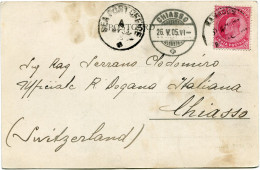 SEA POST OFFICE
CHIASSO
26.V.05.VI-
Sig Rag Serrano Clodomiro
Ufficiale R Dogana Italiana
Chiasso
(Switzerland)